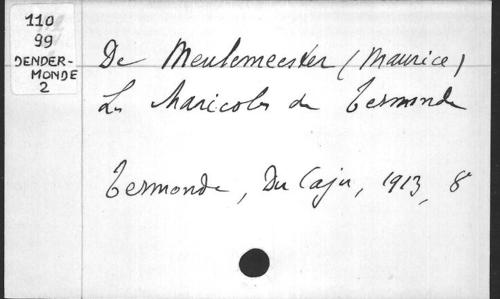 110
99
DENDER-
MONDE
2
De Meulemeester (Maurice)
Les Maricoles de Termonde
Termonde, Du Caju, 1913, 8°